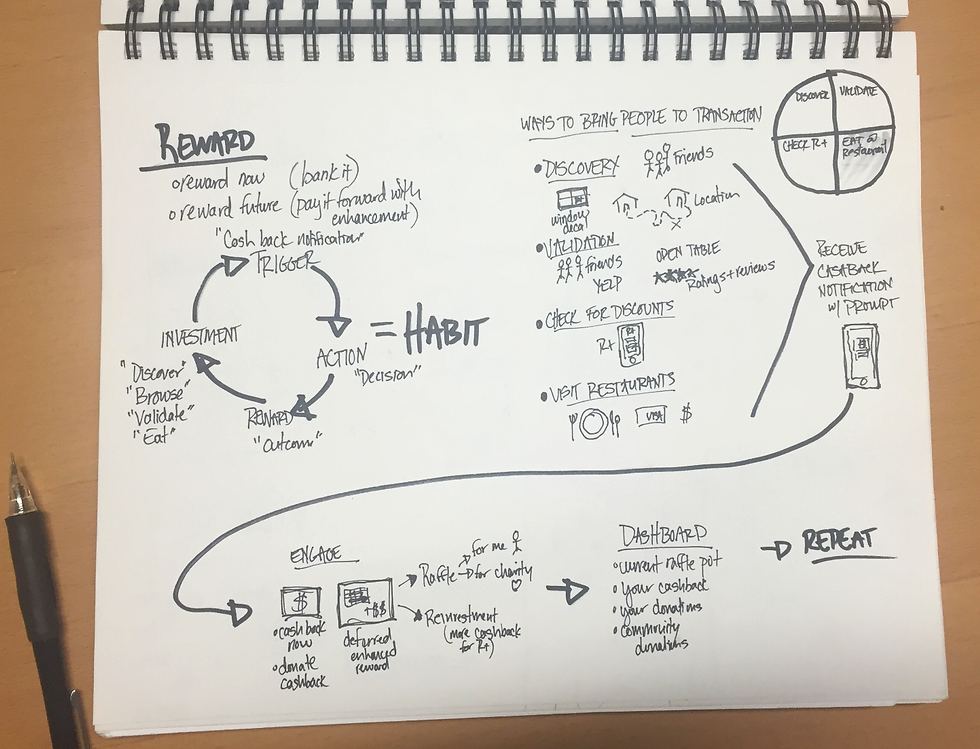 REWARD
o reward now (bank it)
o reward future (pay it forward with enhancement)
"Cash back notification"
TRIGGER
INVESTMENT
"Discover"
"Browse"
"Validate"
"Eat"
ACTION
"Decision"
REWARD
"Outcome"
= HABIT
WAYS TO BRING PEOPLE TO TRANSACTION
• DISCOVERY
friends
window
decal
Location
• VALIDATION
friends
YELP
OPEN TABLE
Ratings + reviews
• CHECK FOR DISCOUNTS
R+
• VISIT RESTAURANTS
VISA
$
DISCOVER
VALIDATE
CHECK R+
EAT @
Restaurant
RECEIVE
CASHBACK
NOTIFICATION
W/ PROMPT
ENGAGE
$
• cash back
now
• donate
cashback
+$$
deferred
enhanced
reward
Raffle
for me
for charity
Reinvestment
(more cashback
for R+)
DASHBOARD
• current raffle pot
• your cashback
• your donations
• community
donations
REPEAT